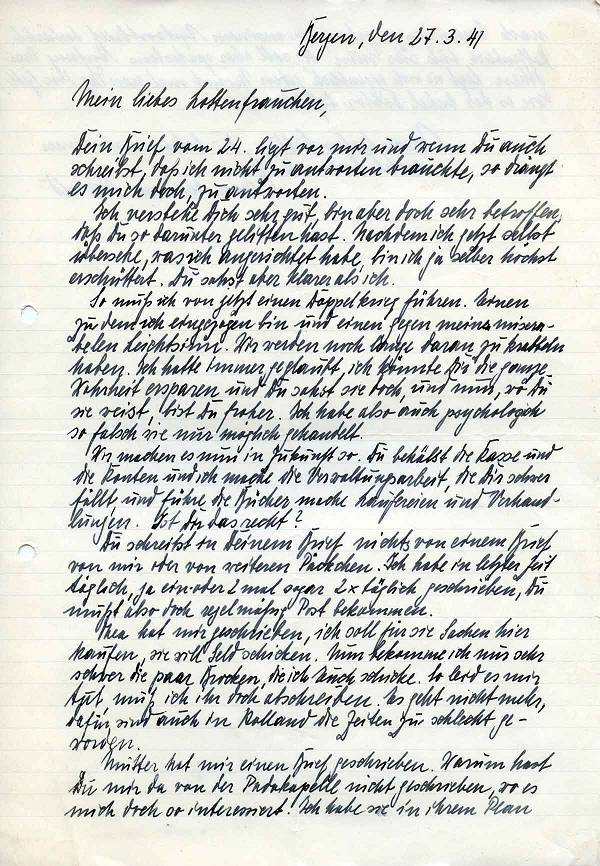 Bergen, den 27.3.41
Mein liebes Lottenfrauchen,
Dein Brief vom 24. liegt vor mir und wenn Du auch
schreibst, daß ich nicht zu antworten brauchte, so drängt
es mich doch, zu antworten.
Ich verstehe Dich sehr gut, bin aber doch sehr betroffen,
daß Du so darunter gelitten hast. Nachdem ich jetzt selbst
übersehe, was ich angerichtet habe, bin ich ja selber höchst
erschüttert. Du sahst aber klarer als ich.
So muß ich von jetzt einen Doppelkrieg führen. Einen
zu dem ich eingezogen bin und einen gegen meinen misera-
belen Leichtsinn. Wir werden noch lange daran zu krabbeln
haben. Ich hatte immer geglaubt, ich könnte Dir die ganze
Wahrheit ersparen und Du sahst sie doch, und nun, wo Du
sie weist, bist Du froher. Ich habe also auch psychologisch
so falsch wie nur möglich gehandelt.
Wir machen es nun in Zukunft so. Du behälst die Kasse und
die Konten und ich mache die Verwaltungsarbeit, die Dir schwer
fällt und führe die Bücher, mache Laufereien und Verhand-
lungen. Ist Dir das recht?
Du schreibst in Deinem Brief nichts von einem Brief
von mir oder von weiteren Päckchen. Ich habe in letzter Zeit
täglich, ja ein oder 2 mal sogar 2x täglich geschrieben, Du
mußt also doch regelmäßig Post bekommen.
Thea hat mir geschrieben, ich soll für sie Sachen hier
kaufen, sie will Geld schicken. Nun bekomme ich nur sehr
schwer die paar Brocken, die ich Euch schicke. So leid es mir
tut, muß ich ihr doch abschreiben. Es geht nicht mehr,
dafür sind auch in Holland die Zeiten zu schlecht ge-
worden.
Mutter hat mir einen Brief geschrieben. Warum hast
Du mir da von der nicht geschrieben, wo es
mich doch so interessiert! Ich habe sie in ihrem Plan